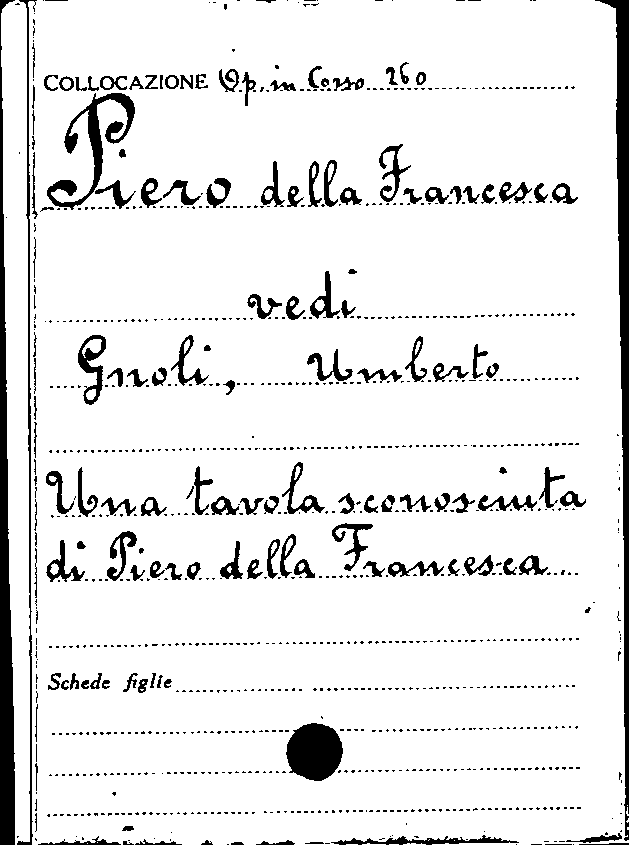 COLLOCAZIONE Op. in Corso 260
Piero della Francesca
vedi
Gnoli, Umberto
Una tavola sconosciuta
di Piero della Francesca
Schede figlie